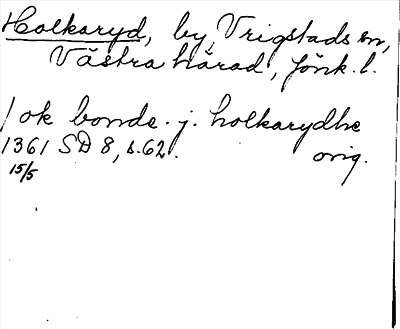 Holkaryd, by, Vrigstads sn,
Västra härad, Jönk. l.
/ ok bonde. j. holkarydhe
1361 SD 8, s. 62. orig.
15/5